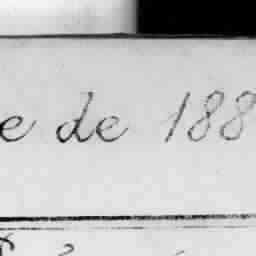 e de 188